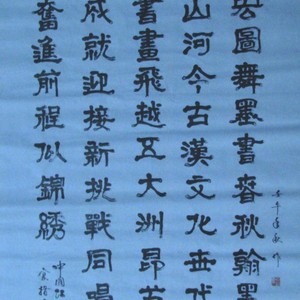 圖舞墨書春秋翰墨
山河今古漢文化世代
書畫飛越五大洲昂首
成就迎接新挑戰同唱
奮進前程似錦綉
中國